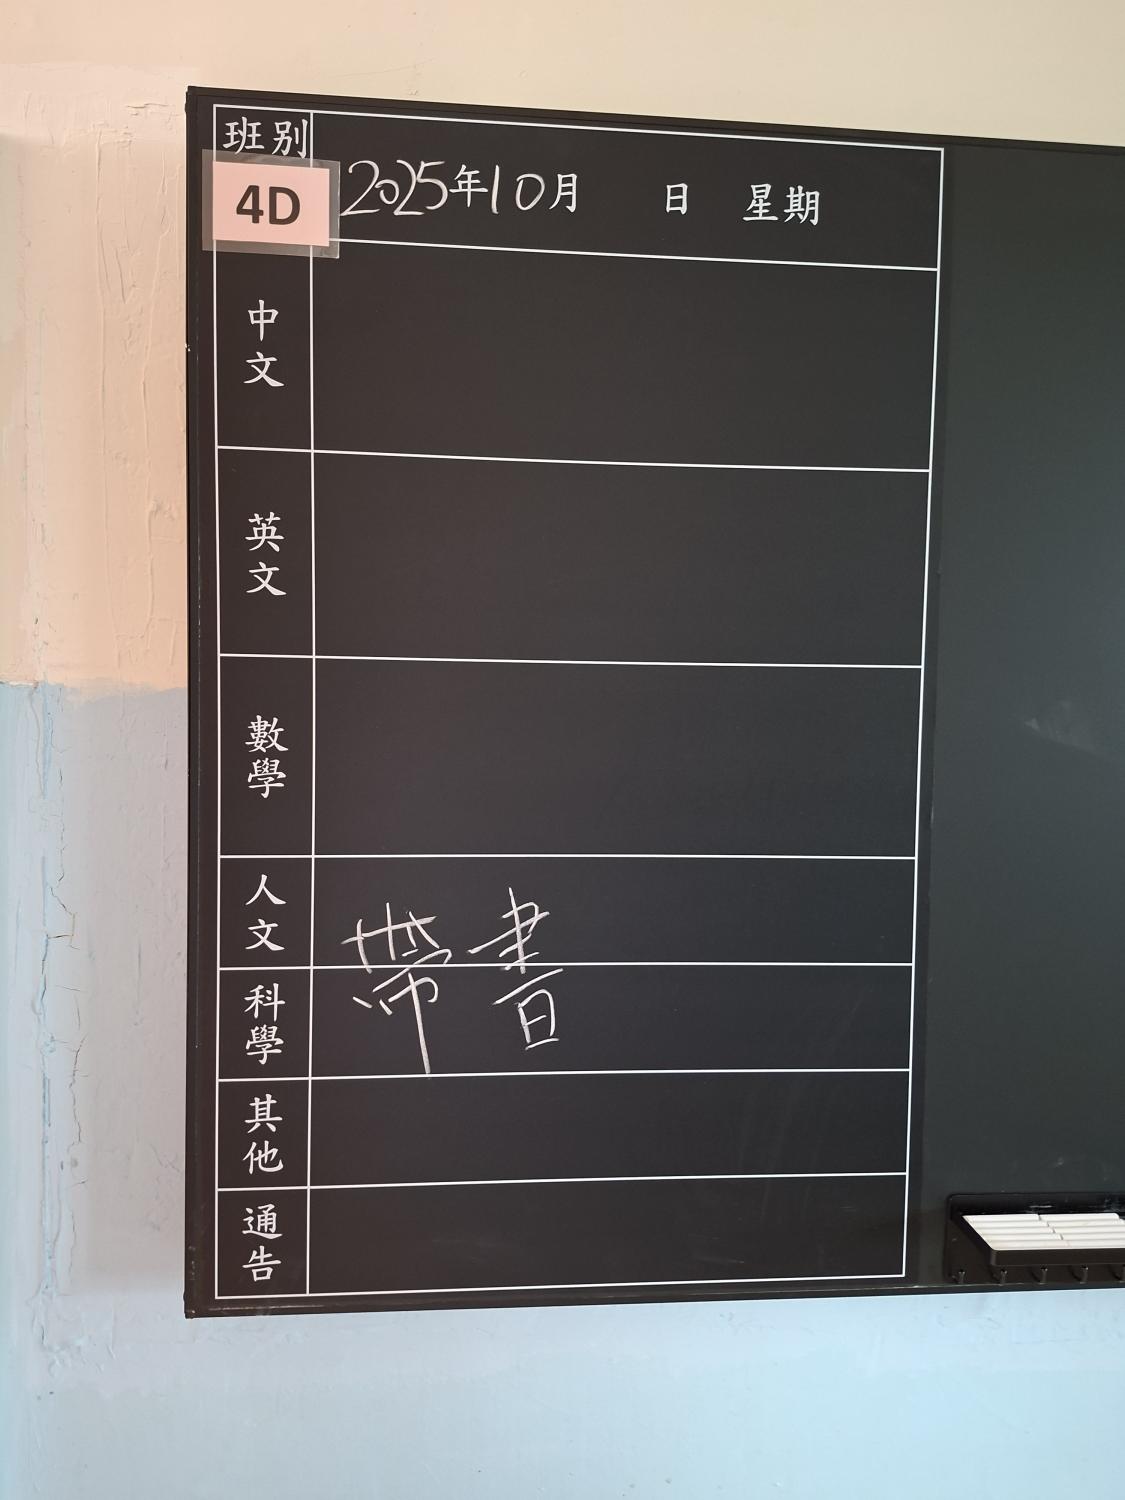 班別
4D
2025年10月 日 星期
中文
英文
數學
人文
科學
帶書
其他
通告